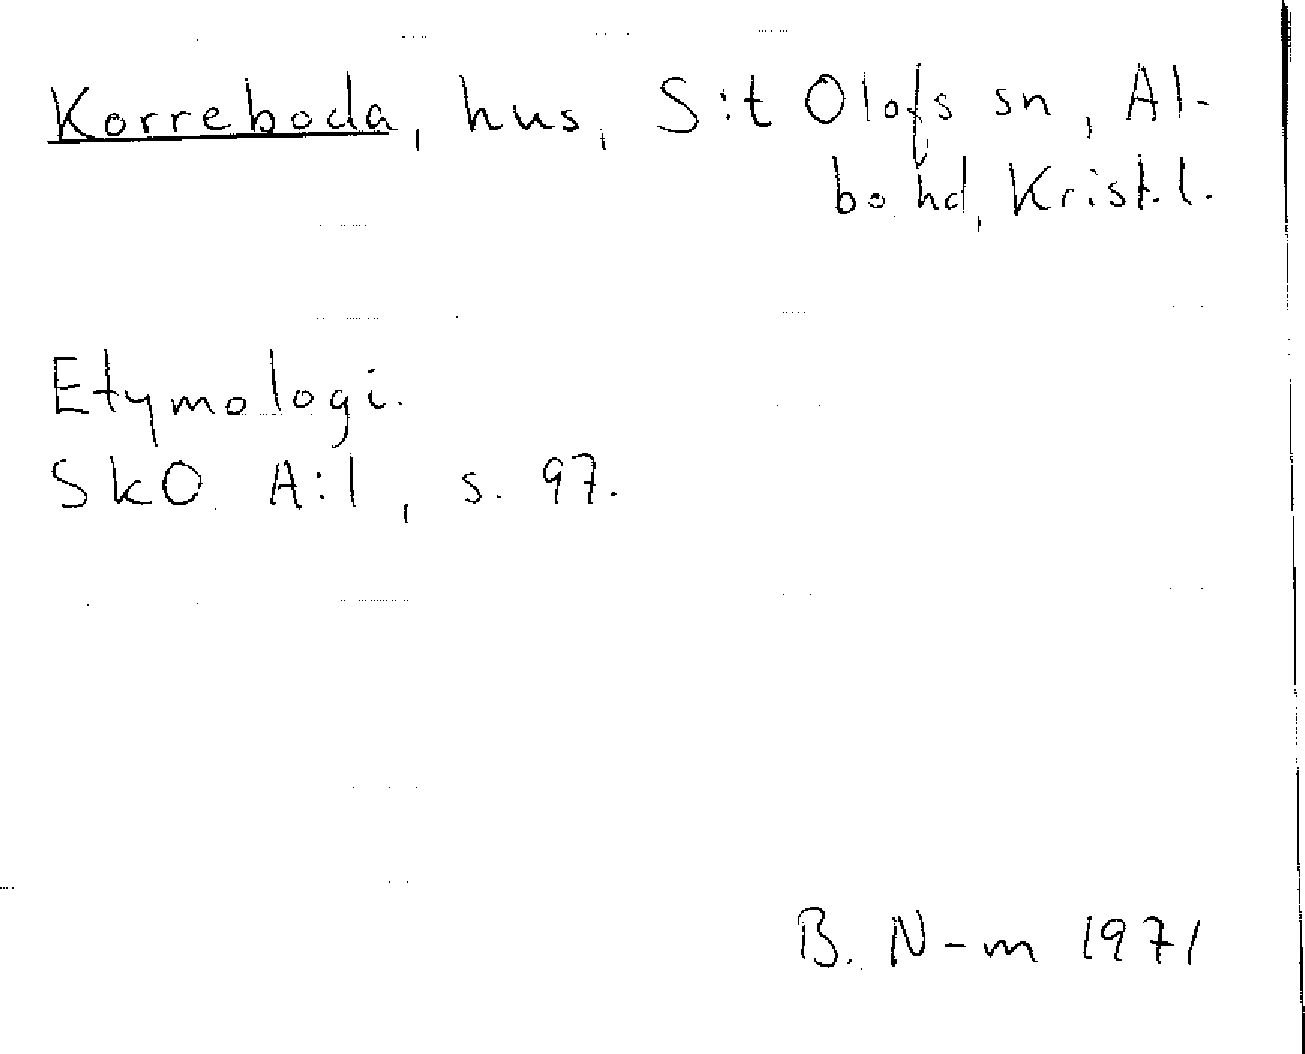 Korreboda, hus, S:t Olofs sn, Al-
bo hd, Krist.l.
Etymologi.
SkO A:1, s. 97.
B. N-m 1971